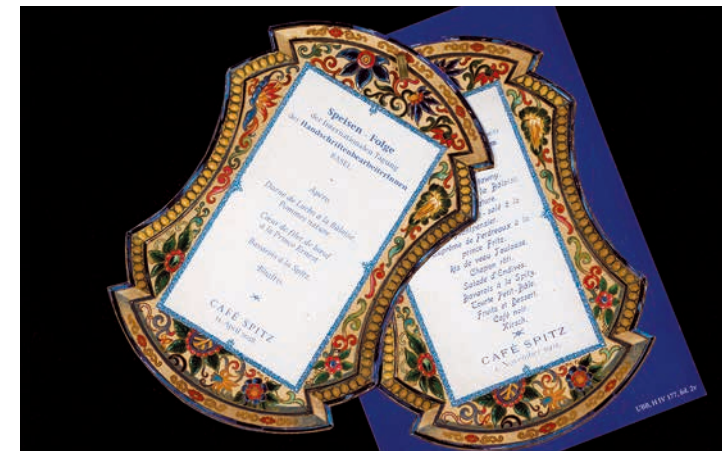 Speisen - Folge
der Internationalen Tagung
der HandschriftenbearbeiterInnen
BASEL
Apéro.
Darne de Lachs à la Bâloise.
Pommes nature.
Cœur de filet de bœuf
à la Prince Ernest
Bavarois à la Spitz.
CAFÉ SPITZ
April
la Bâloise.
nature.
salé à la
Suprême de Perdreaux à la
prince Fritz.
Ris de veau Toulouse.
Chapon rôti.
Salade d'Endives.
Bavarois à la Spitz.
Tourte Petit-Bâle.
Fruits et Dessert.
Café noir.
Kirsch.
CAFÉ SPITZ
November
UBB, H IV 177, fol. 2v